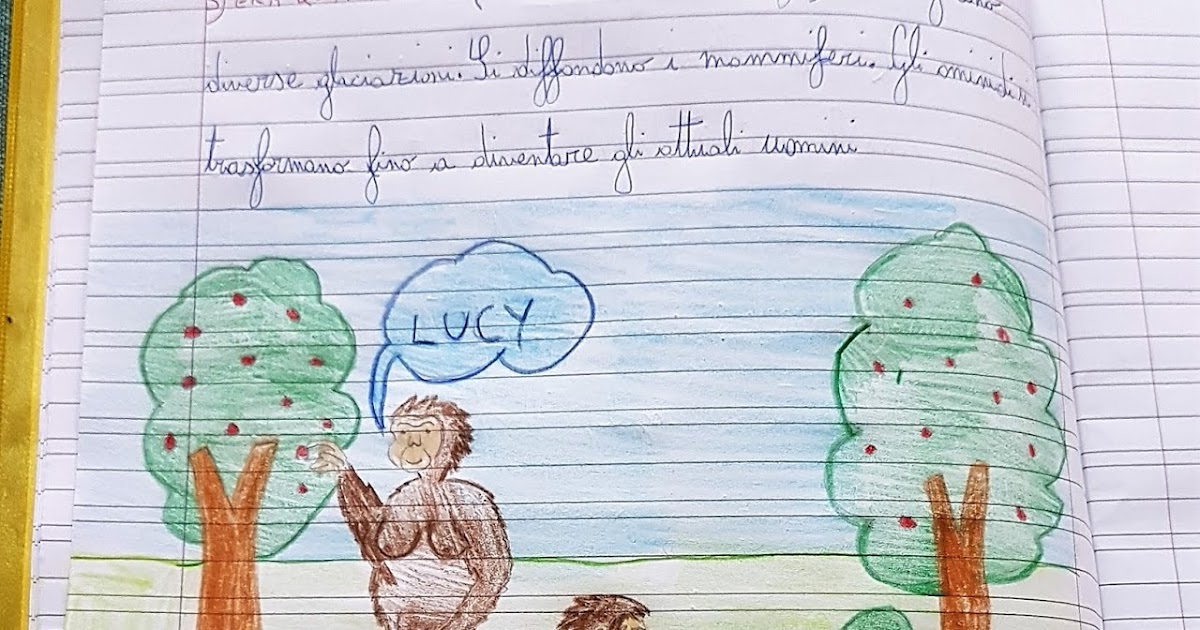 diverse glaciazioni. Si diffondono i mammiferi. Gli ominidi si
trasformano fino a diventare gli attuali uomini
LUCY